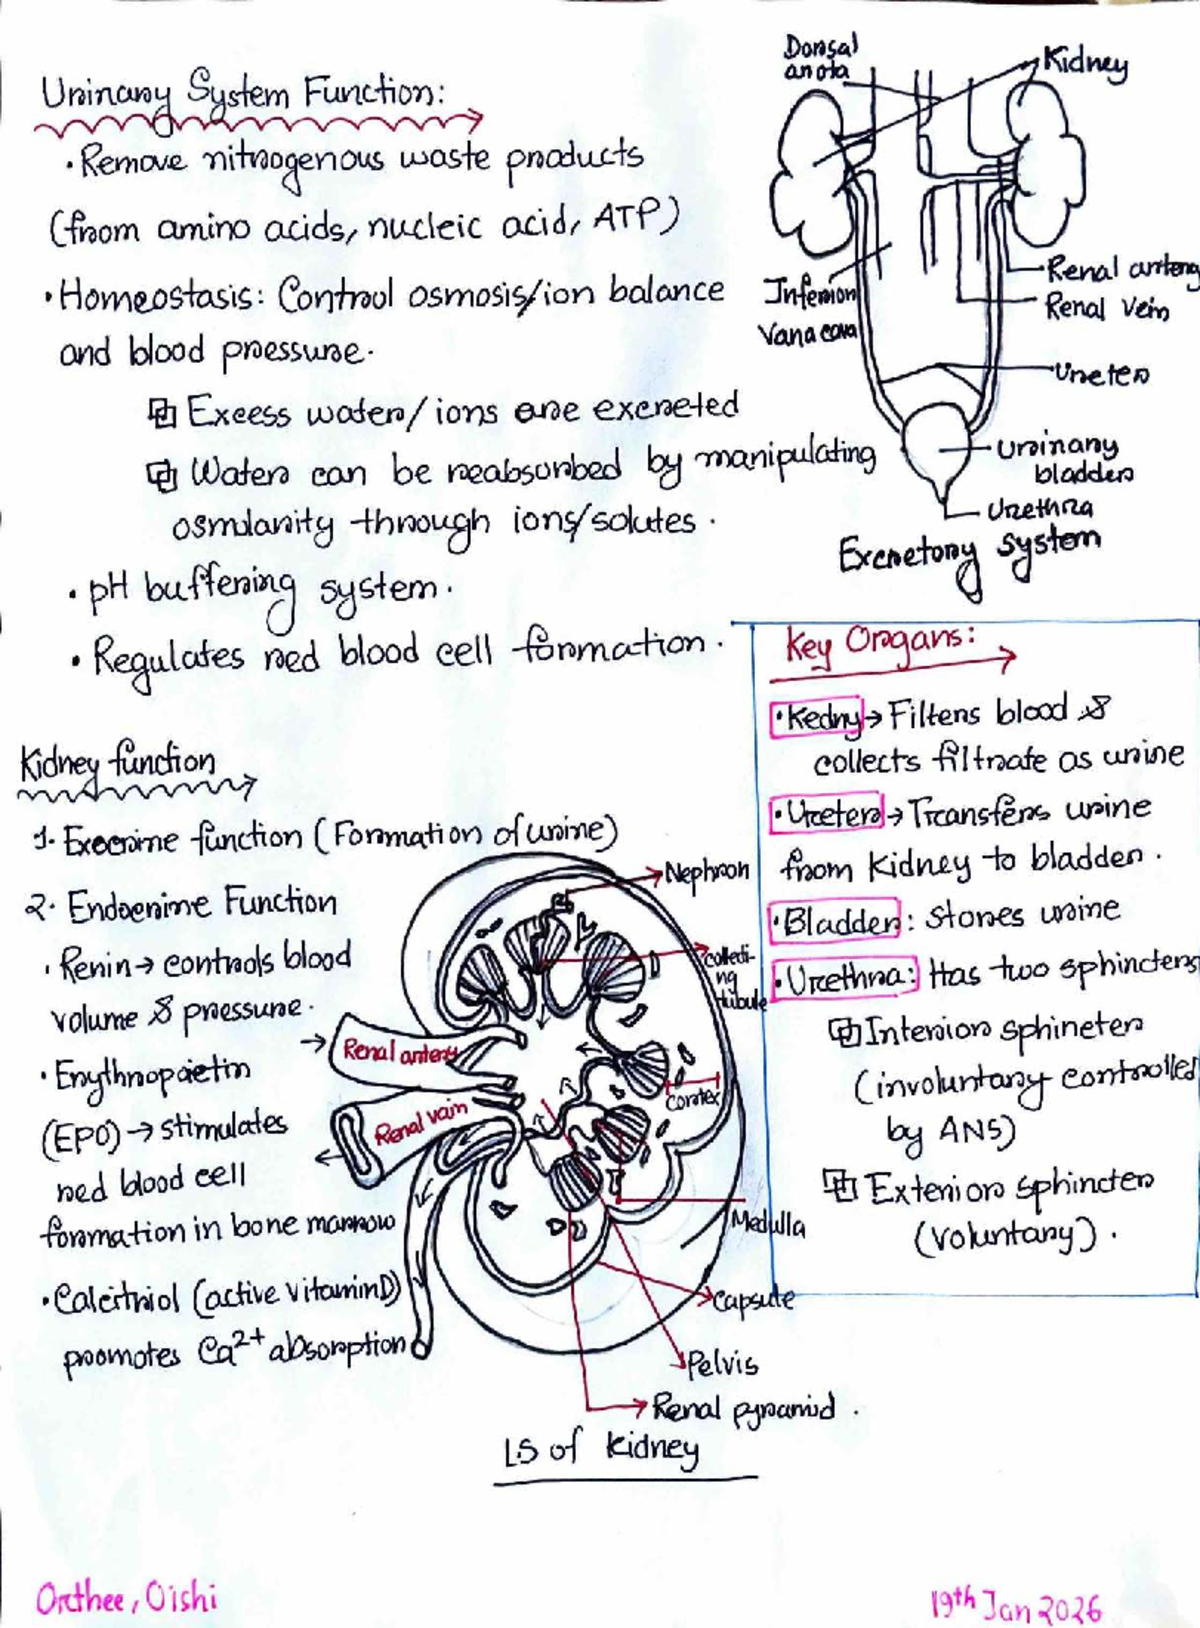 Urinary System Function:
• Remove nitrogenous waste products
(from amino acids, nucleic acid, ATP)
• Homeostasis: Control osmosis/ion balance
and blood pressure.
Excess water/ions are excreted
Water can be reabsorbed by manipulating
osmolarity through ions/solutes.
• pH buffering system.
• Regulates red blood cell formation.
Dorsal
aorta
Kidney
Inferior
Vana cava
Renal artery
Renal vein
Ureter
Urinary
bladder
Urethra
Excretory system
Key Organs:
• Kedny → Filters blood &
collects filtrate as urine
• Ureter → Transfers urine
from kidney to bladder.
• Bladder: Stores urine
• Urethra: Has two sphincters
Interior sphincter
(involuntary controlled
by ANS)
Exterior sphincter
(voluntary).
Kidney function
1. Exocrine function (Formation of urine)
2. Endocrine Function
• Renin → controls blood
volume & pressure.
• Erythropoietin
(EPO) → stimulates
red blood cell
formation in bone marrow
• Calcitriol (active vitamin D)
promotes Ca2+ absorption
Nephron
collecti-
ng
tubule
Renal artery
Renal vain
Cortex
Medulla
Capsule
Pelvis
Renal pyramid.
L.S of kidney
Orthee, Oishi
19th Jan 2026